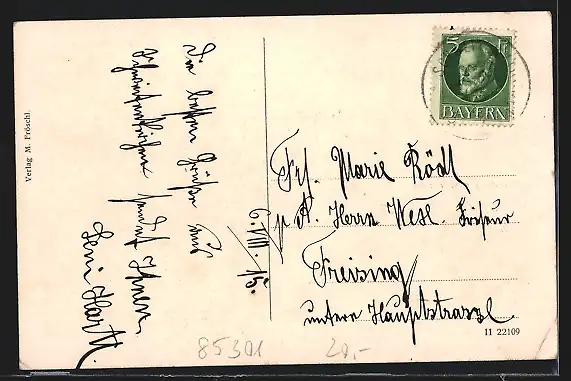 Die besten Grüße aus
Schweitenkirchen sendet Ihnen
Leni Hartl.
6. VIII. 15.
Verlag M. Fröschl.
5 Pf
BAYERN
Frl. Marie Rödl
p. A. Herrn Wessl. Friseur
Freising
untere Hauptstrasse
II 22109
85301
20,-